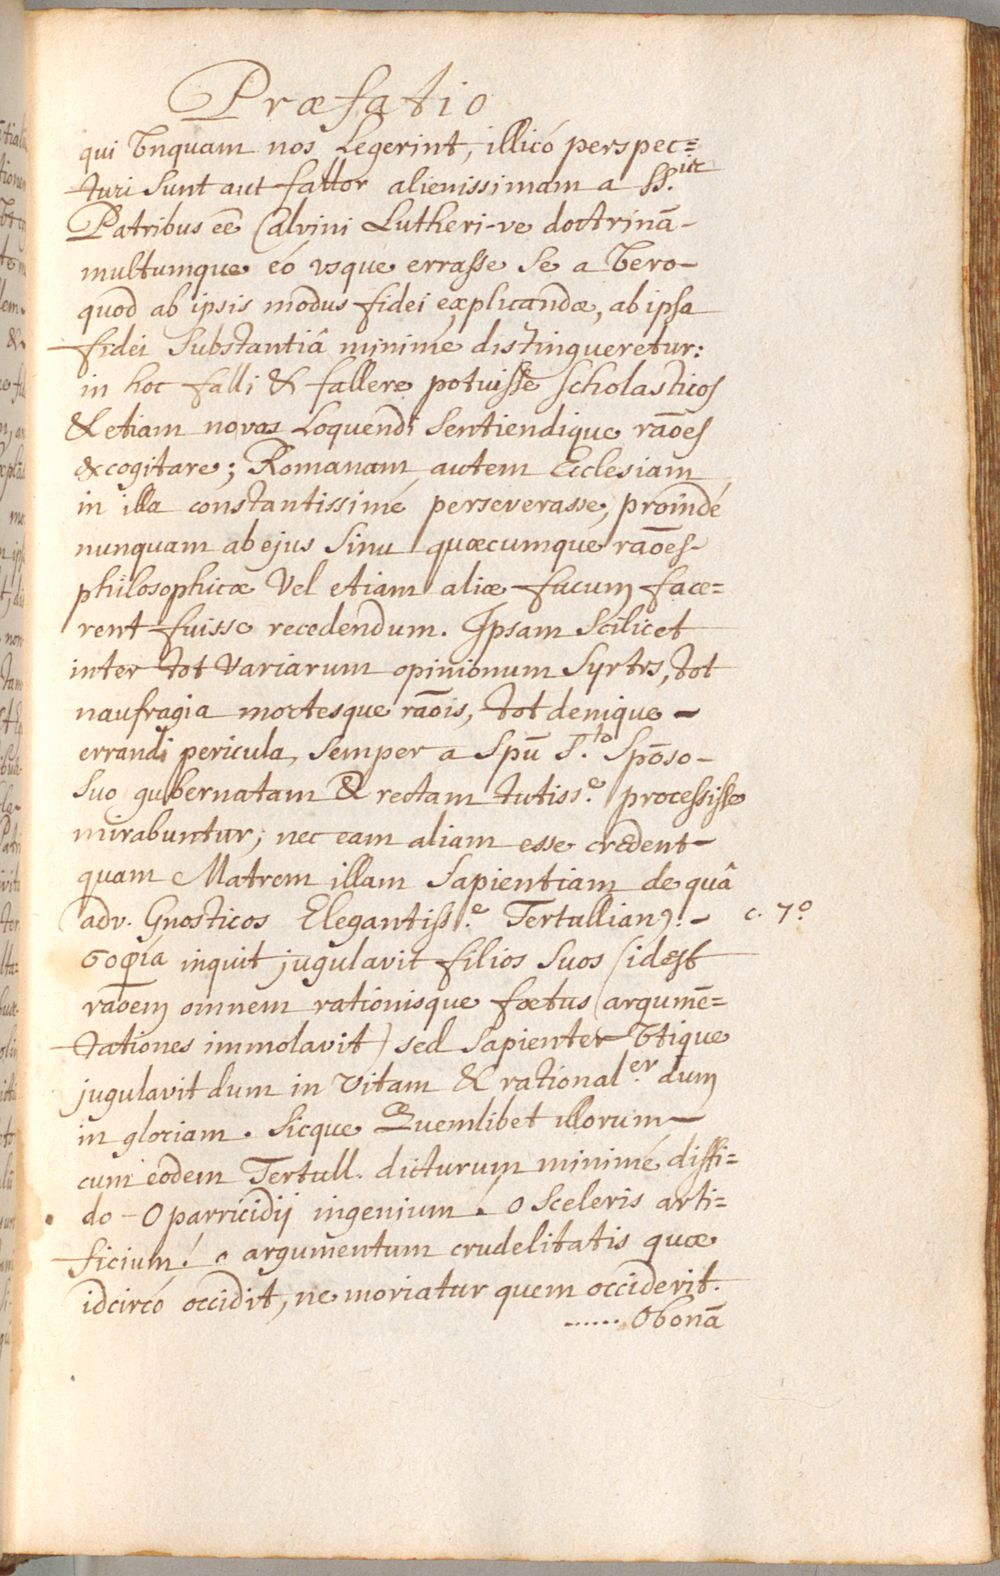 Præfatio
qui Vnquam nos Legerint, illicó perspec=
turi sunt aut fallor alienissimam a SS.
Patribus eē Calvini Lutheri-ve doctrinā-
multumque eó vsque errasse se a Vero-
quod ab ipsis modus fidei explicandæ, ab ipsa
fidei Substantiâ minimé distingueretur:
in hoc falli & fallere potuisse scholasticos
& etiam novas Loquendi sentiendique rāoes
excogitare; Romanam autem Ecclesiam
in illa constantissimé perseverasse, proindé
nunquam ab ejus sinu quæcumque rāoes-
philosophicæ Vel etiam aliæ fucum face=
rent fuisse recedendum. Ipsam scilicet
inter tot Variarum opinionum Syrtes, tot
naufragia mortesque rāois, tot denique -
errandi pericula, semper a Spū S.to Spōso-
suo gubernatam & rectam tutiss.e processisse
mirabuntur; nec eam aliam esse credent-
quam Matrem illam Sapientiam de quâ
adv. Gnosticos Elegantiss.e Tertullian9.- c. 7o
σοφία inquit jugulavit filios suos (id est
rāoem omnem rationisque fœtus (argumē=
tationes immolavit) sed sapienter Vtique
jugulavit dum in Vitam & rational.er dum
in gloriam. Sicque Quemlibet illorum-
cum eodem Tertull. dicturum minimé diffi=
do - O parricidij ingenium! o sceleris arti=
ficium! o argumentum crudelitatis quæ
idcircó occidit, ne moriatur quem occiderit.
...... O bonā